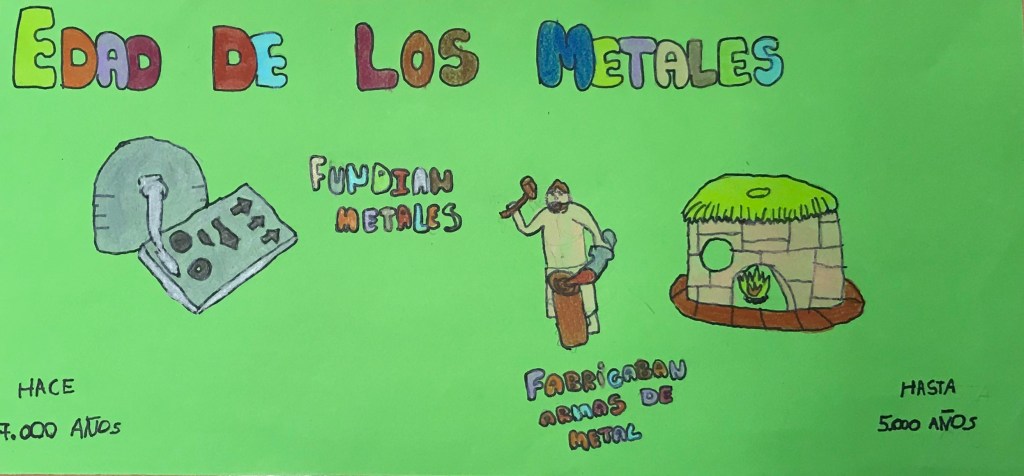 EDAD DE LOS METALES
FUNDIAN
METALES
FABRICABAN
ARMAS DE
METAL
HACE
7.000 AÑOS
HASTA
5.000 AÑOS